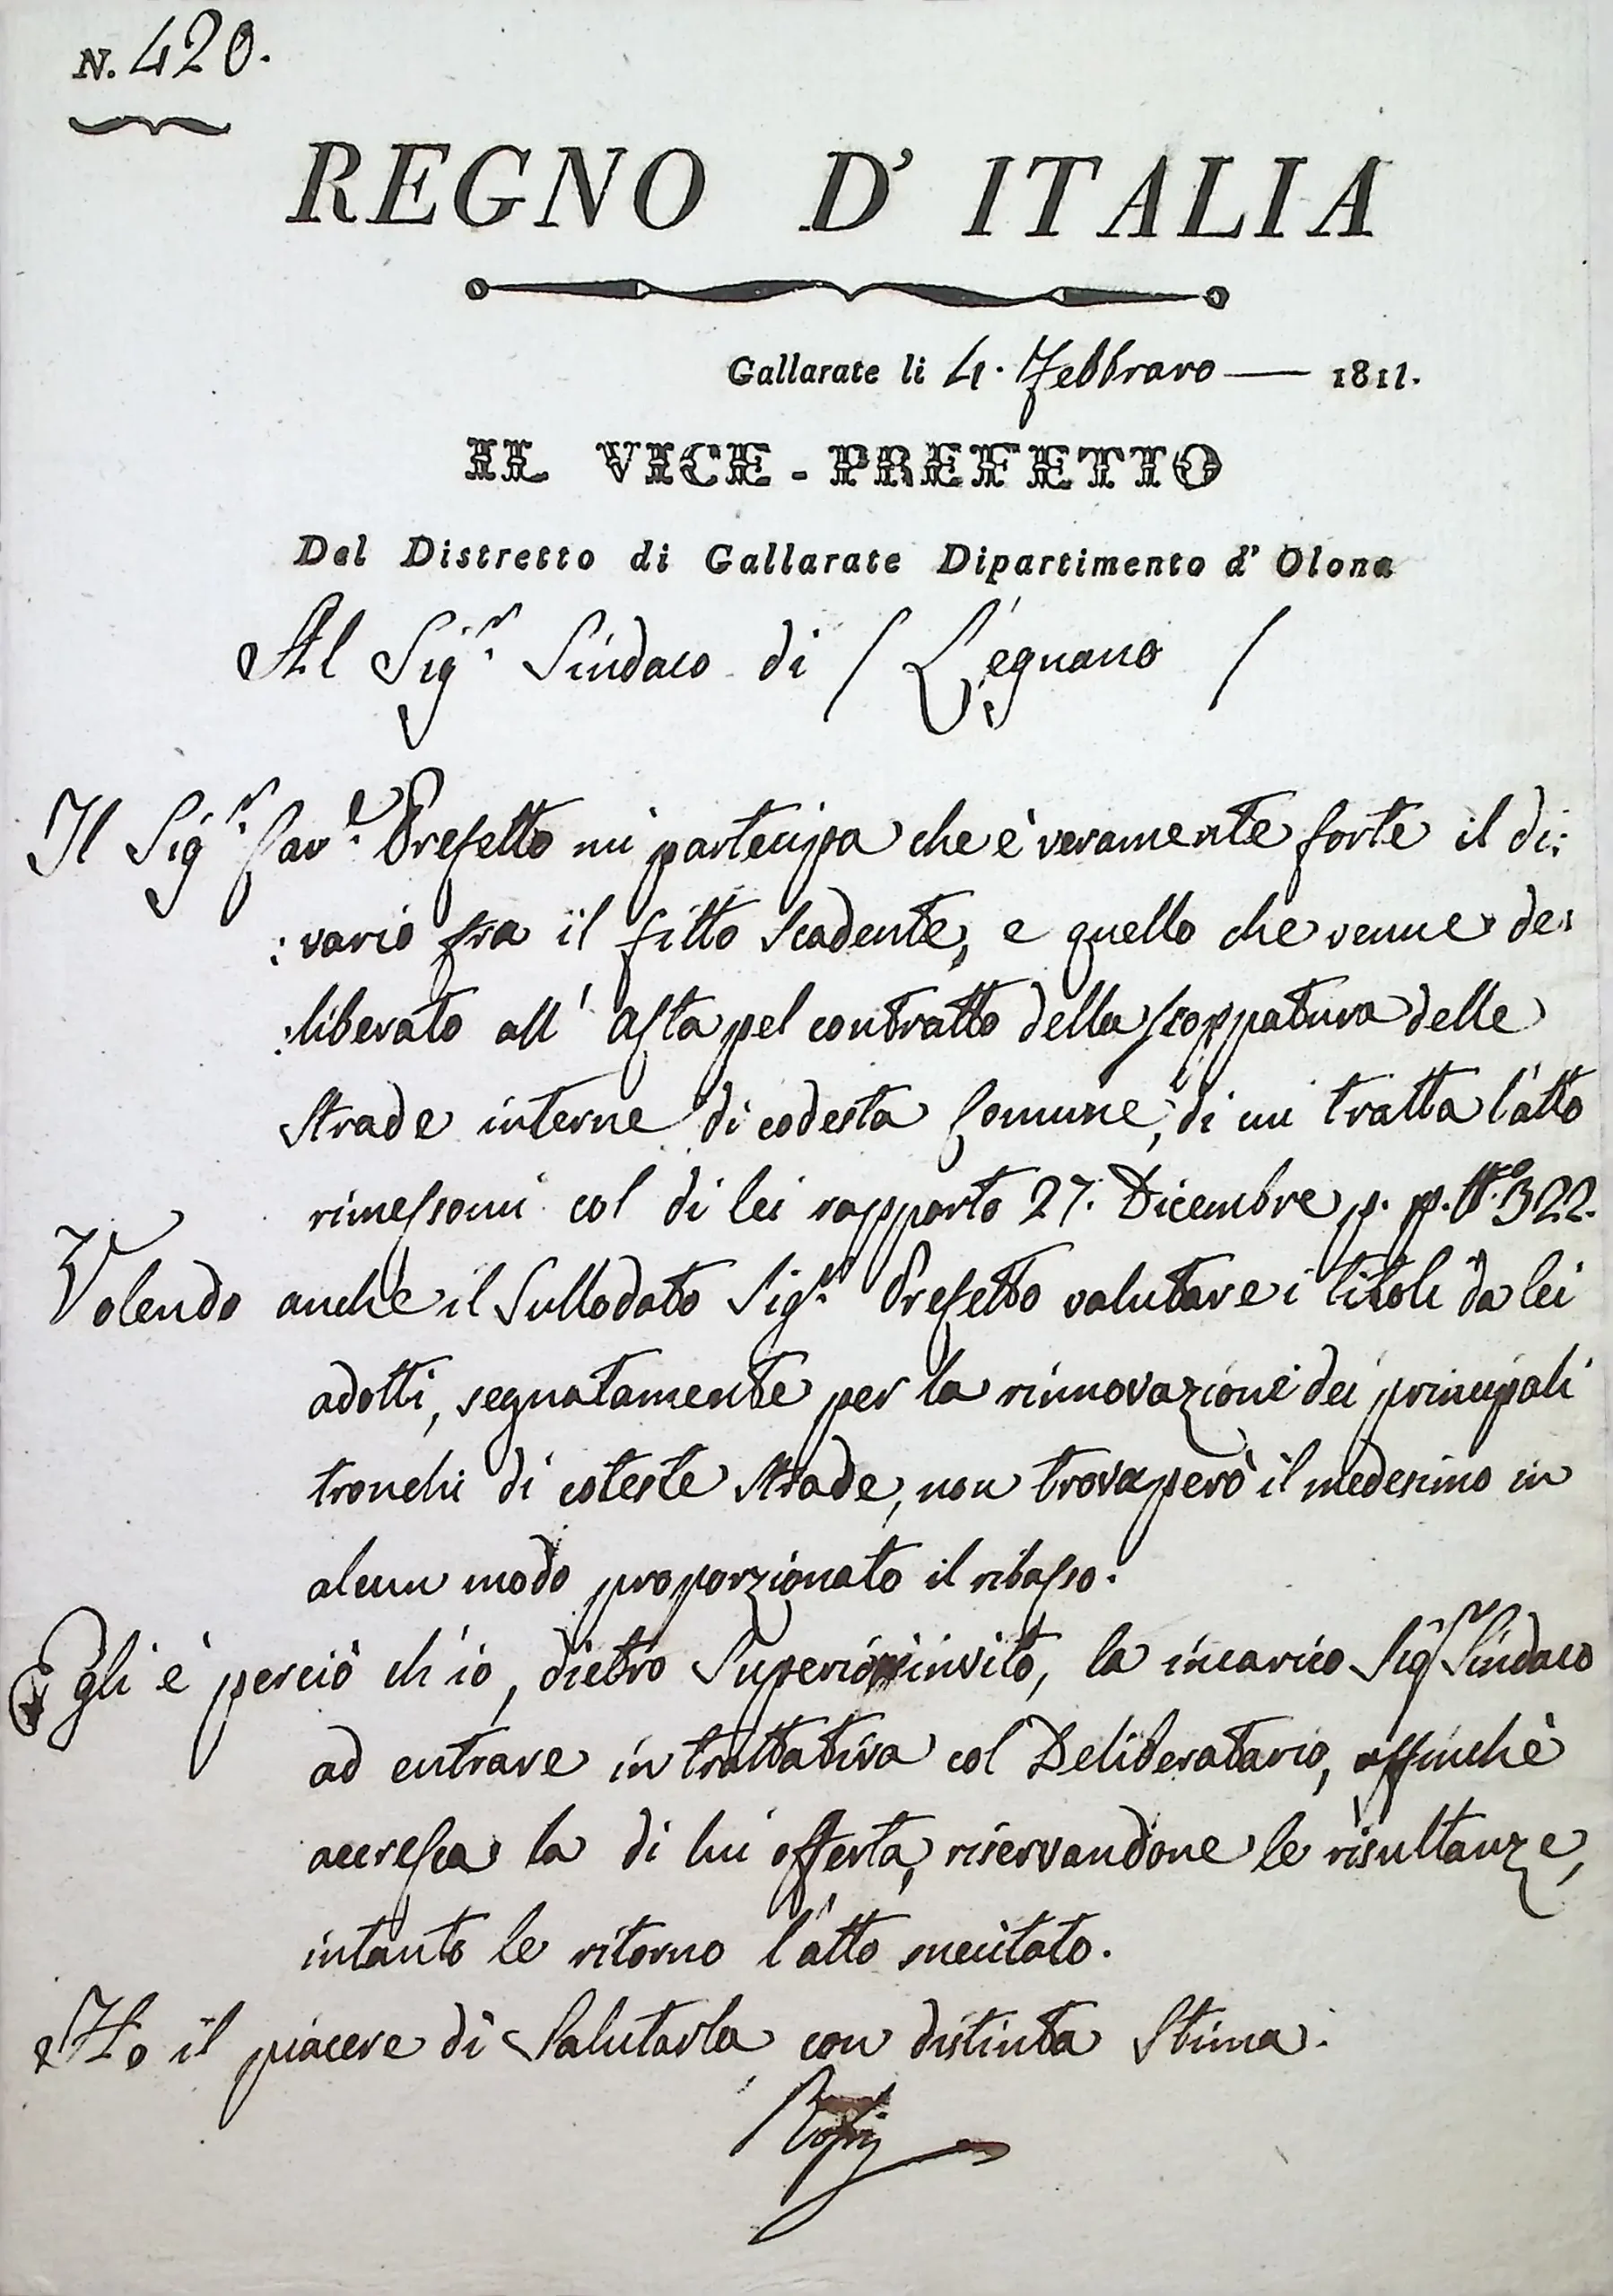 N. 420.
REGNO D' ITALIA
Gallarate li 4. Febbraro — 1811.
IL VICE-PREFETTO
Del Distretto di Gallarate Dipartimento d' Olona
Al Sig.r Sindaco di / Legnano /
Il Sig.r Cav.e Prefetto mi partecipa che è veramente forte il di:
:vario fra il fitto Scadente, e quello che venne de:
:liberato all' Asta pel contratto della scoppatura delle
Strade interne di codesta Comune, di cui tratta l'atto
rimessomi col di lei rapporto 27. Dicembre p. p. N.o 322.
Volendo anche il Sullodato Sig.r Prefetto valutare i titoli da lei
adotti, segnatamente per la rinnovazione dei principali
tronchi di coteste Strade, non trova però il medesimo in
alcun modo proporzionato il ribasso.
Egli è perciò ch'io, dietro Superior invito, la incarico Sig.r Sindaco
ad entrare in trattativa col Deliberatario, affinchè
accresca la di lui offerta, riservandone le risultanze,
intanto le ritorno l'atto succitato.
Ho il piacere di Salutarla con distinta Stima.